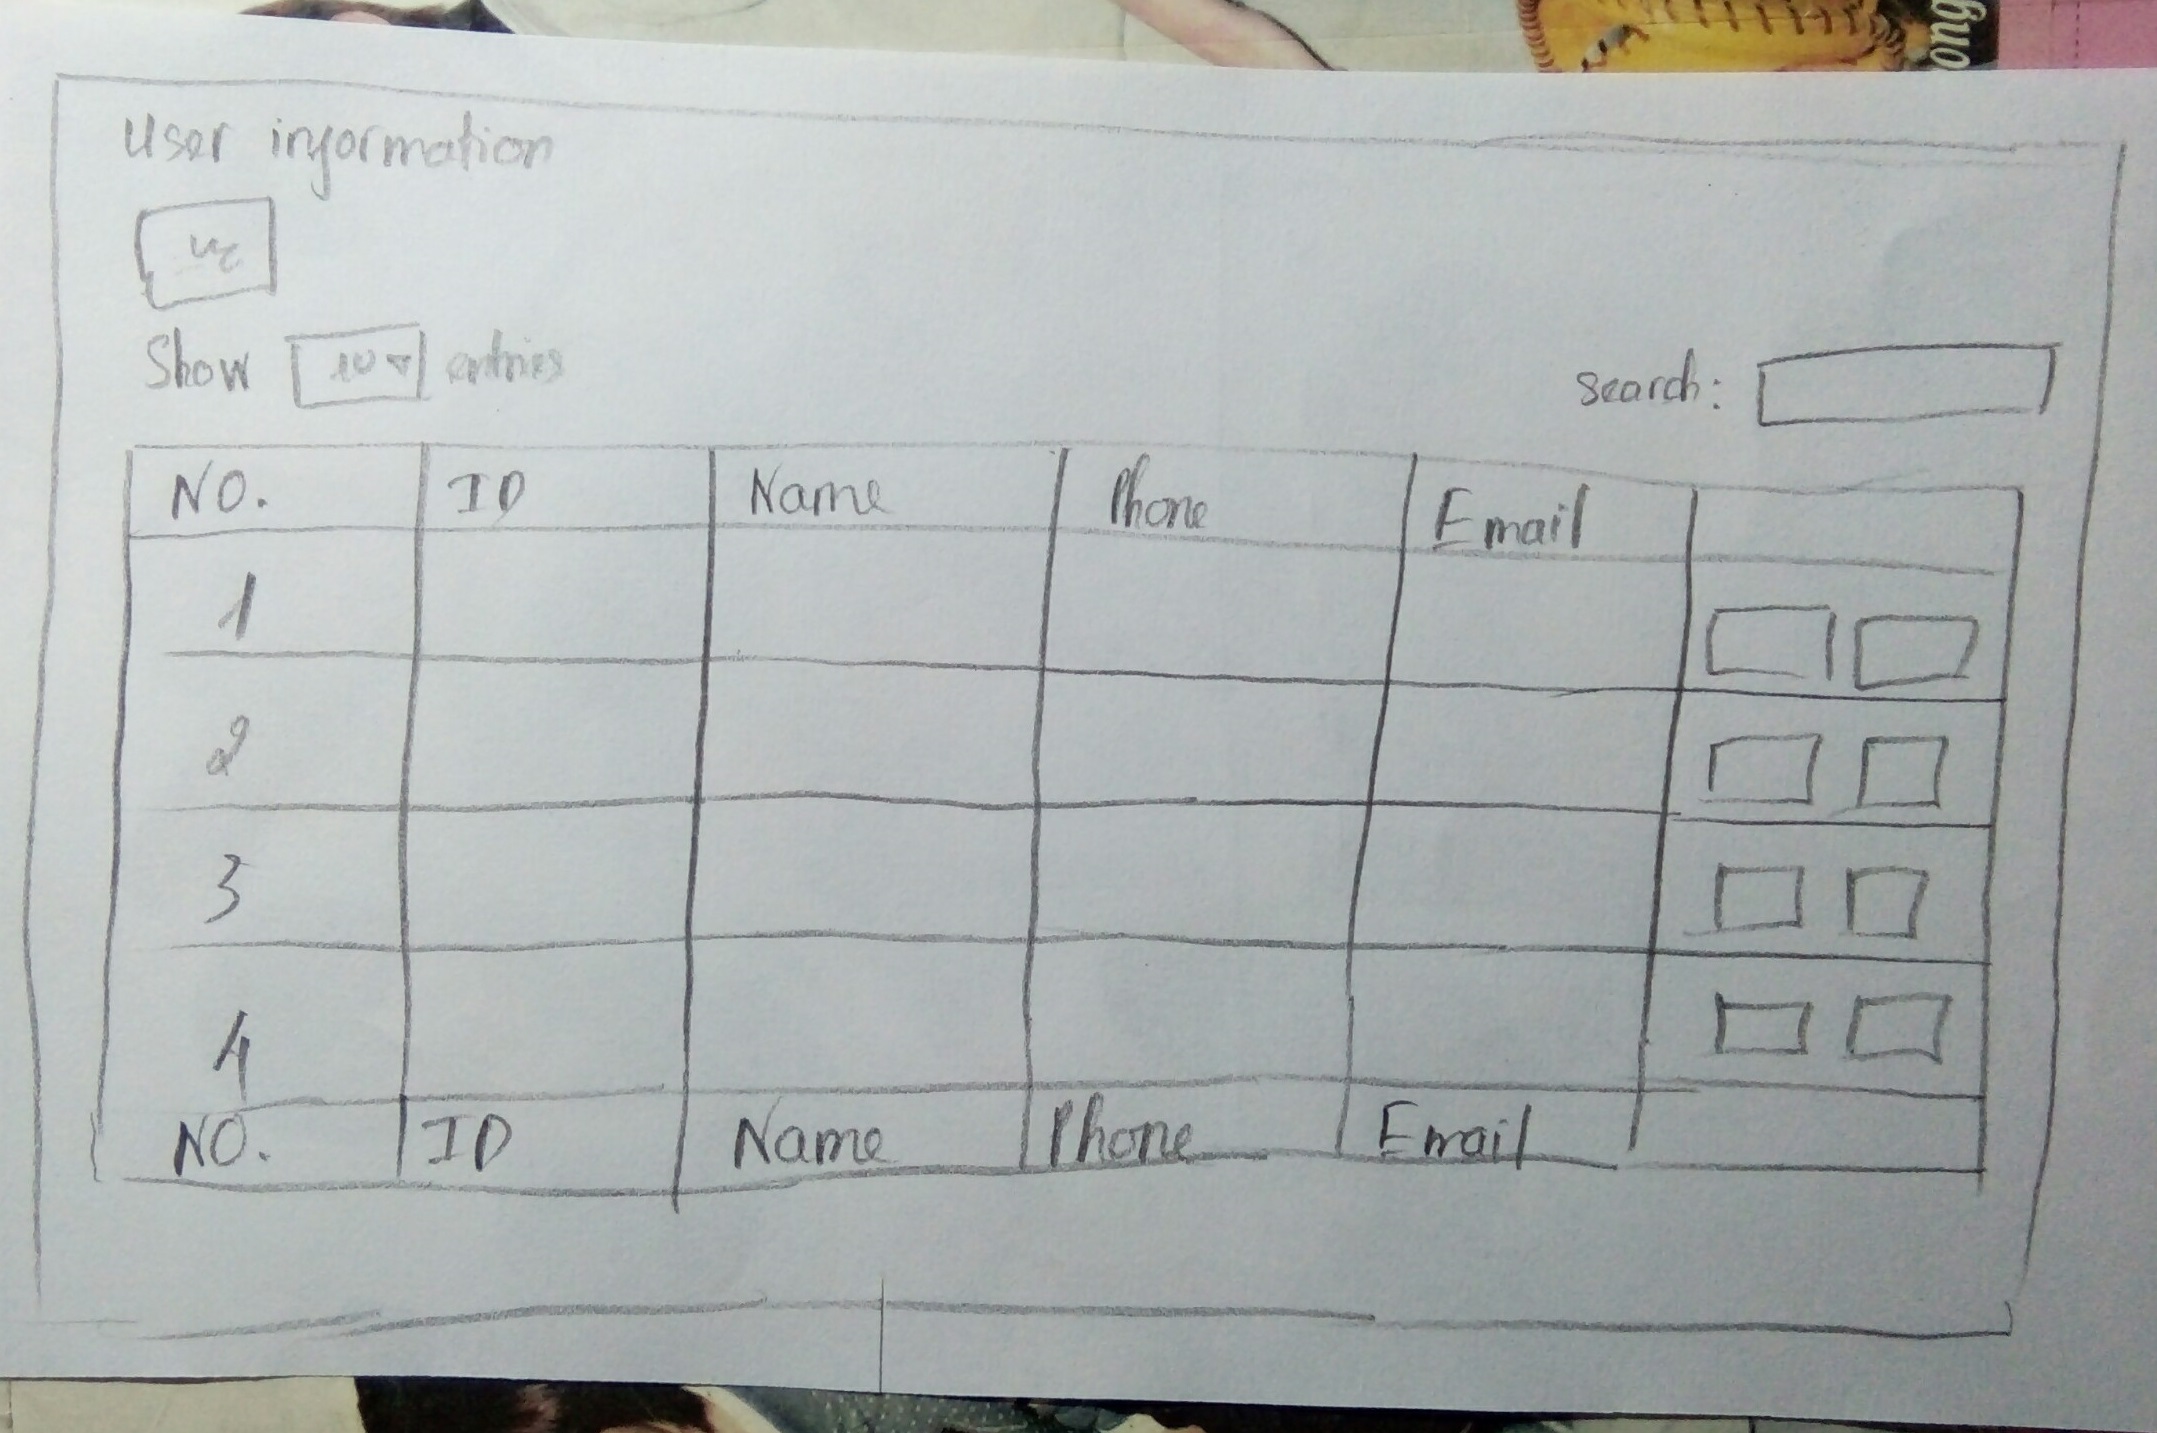 User information
Show 10 entries
search:
NO. ID Name Phone Email
1
2
3
4
NO. ID Name Phone Email
ong